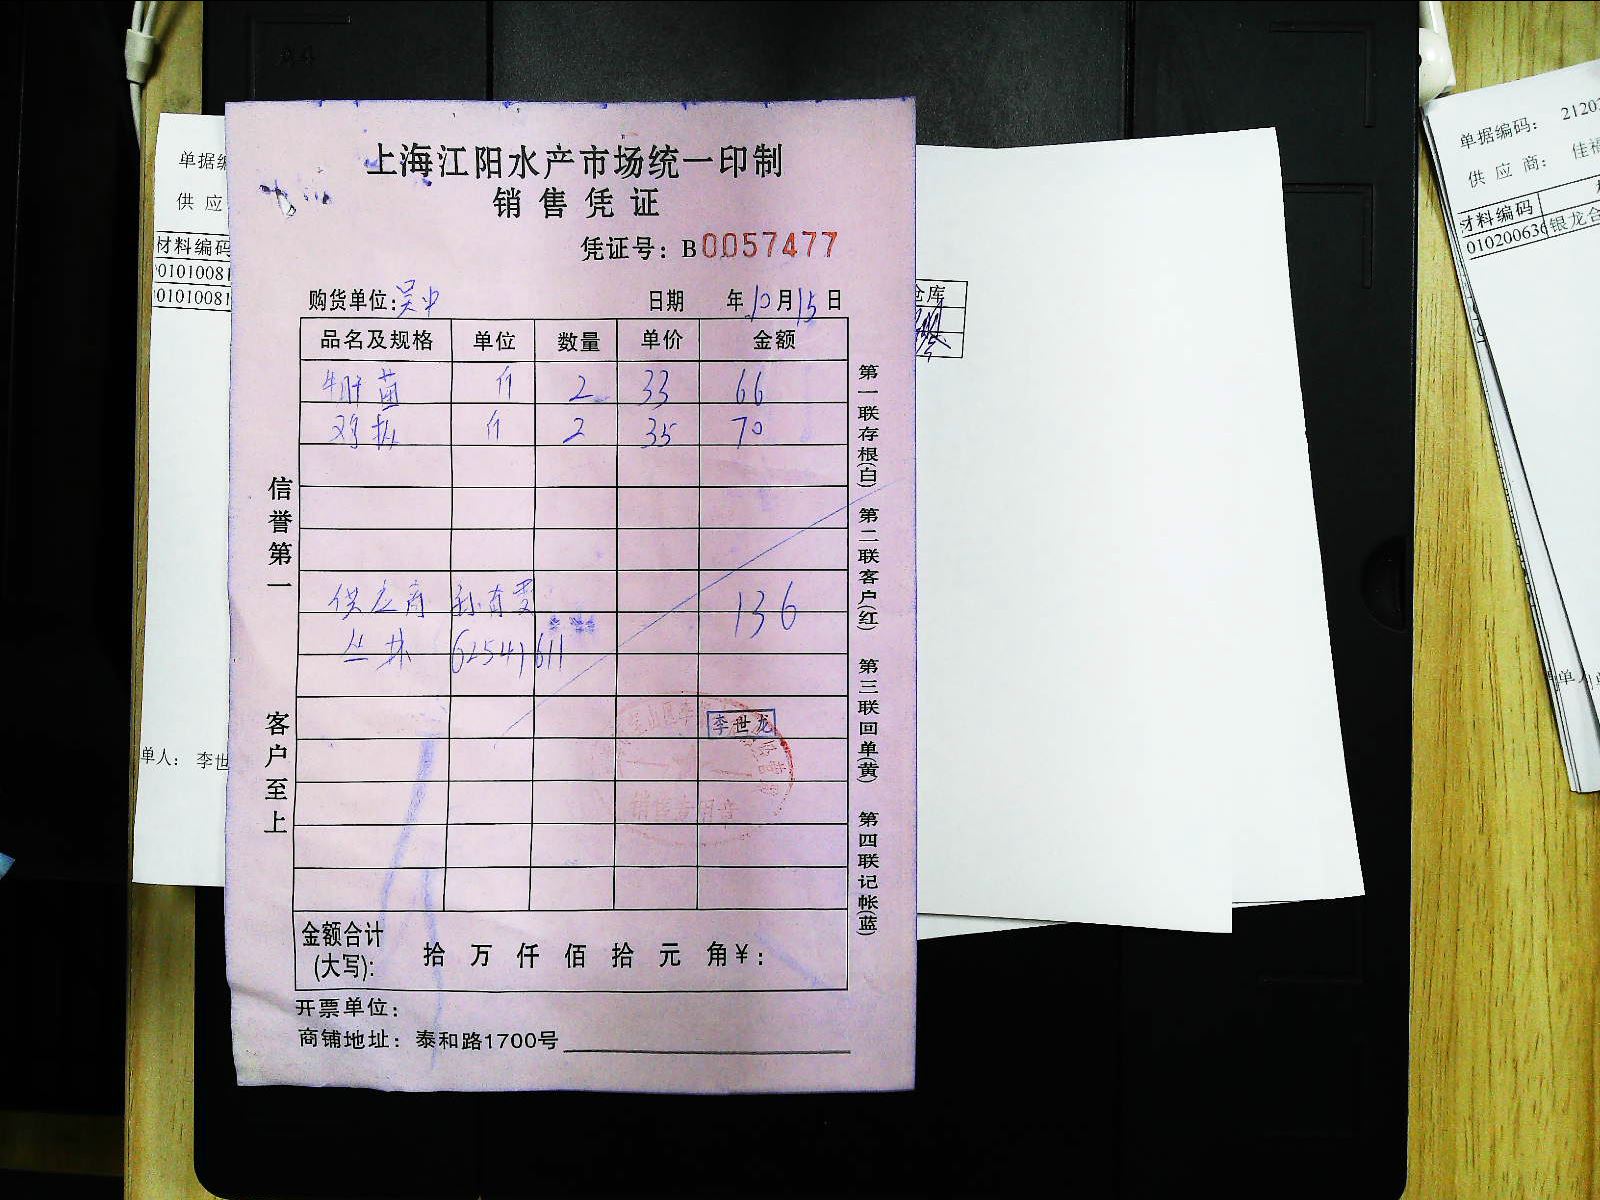 上海江阳水产市场统一印制
销售凭证
凭证号：B0057477
购货单位:吴中 日期 年10月15日
品名及规格 单位 数量 单价 金额
牛肝菌 斤 2 33 66
鸡枞 斤 2 35 70
供应商 136
丛林 62541611
李世龙
销售专用章
金额合计
(大写): 拾 万 仟 佰 拾 元 角¥:
开票单位:
商铺地址：泰和路1700号
信誉第一
客户至上
第一联存根(白) 第二联客户(红) 第三联回单(黄) 第四联记帐(蓝)
单据编
供 应
材料编码
01010081
01010081
单人: 李世
仓库
单据编码: 21203
供 应 商: 佳福
材料编码
010200636 银龙合